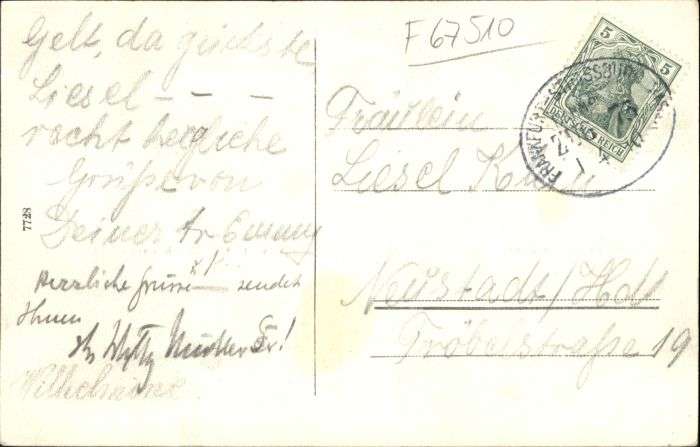 Gelt, da guckste
Liesel - - -
recht herzliche
Grüße von
Deiner tr. Emmy
Herzliche Grüsse sendet
Ihnen
Wilhelmine
7728
F 67510
Fräulein
Liesel
Neustadt/Hdt
Fröbelstraße 19
5 5
DEUTSCHES REICH
FRANKFURT - STRASSBURG
ZUG